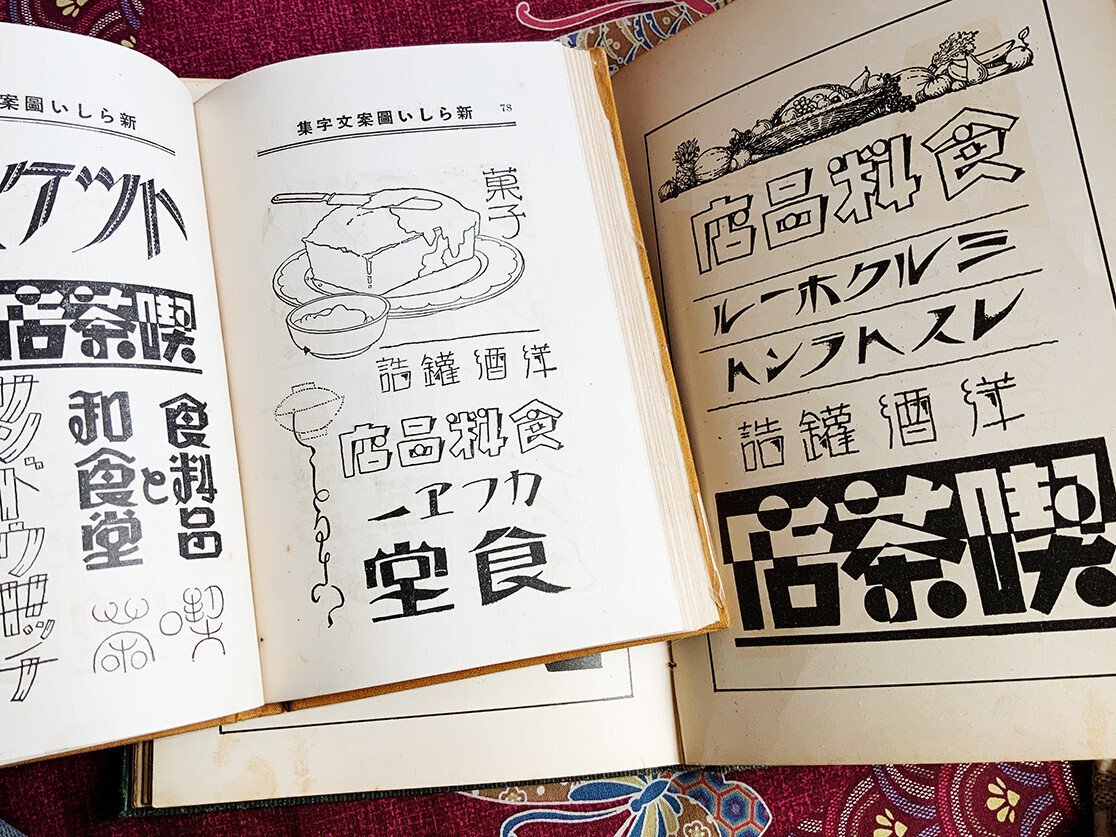 新らしい圖案
ケツト
喫茶店
食料品
と
和食堂
喫茶
新らしい圖案文字集 78
菓子
洋酒罐詰
食料品店
カフヱー
食堂
食料品店
ミルクホール
レストラント
洋酒罐詰
喫茶店